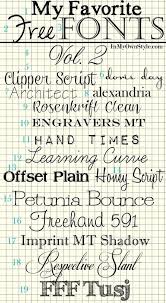 My Favorite
Free FONTS
InMyOwnStyle.com
1 Vol. 2
2 Clipper Script 3 dom's day
4 Architect 5 alexandria
6 Rosenkrift Clean
10 ENGRAVERS MT
11 HAND TIMES
12 Learning Curve
Offset Plain Honey Script
15 Petunia Bounce
16 Freehand 591
17 Imprint MT Shadow
18 Respective Slant
19 FFF Tusj